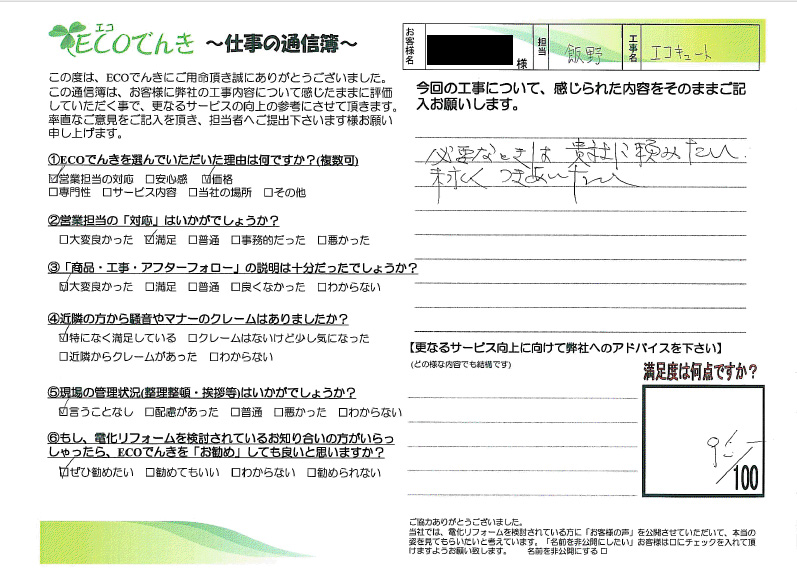 エコ
ECOでんき ～仕事の通信簿～
この度は、ECOでんきにご用命頂き誠にありがとうございました。
この通信簿は、お客様に弊社の工事内容について感じたままに評価
していただく事で、更なるサービスの向上の参考にさせて頂きます。
率直なご意見をご記入を頂き、担当者へご提出下さいます様お願い
申し上げます。
①ECOでんきを選んでいただいた理由は何ですか？(複数可)
☑営業担当の対応 □安心感 ☑価格
□専門性 □サービス内容 □当社の場所 □その他
②営業担当の「対応」はいかがでしょうか？
□大変良かった ☑満足 □普通 □事務的だった □悪かった
③「商品・工事・アフターフォロー」の説明は十分だったでしょうか？
☑大変良かった □満足 □普通 □良くなかった □わからない
④近隣の方から騒音やマナーのクレームはありましたか？
☑特になく満足している □クレームはないけど少し気になった
□近隣からクレームがあった □わからない
⑤現場の管理状況(整理整頓・挨拶等)はいかがでしょうか？
☑言うことなし □配慮があった □普通 □悪かった □わからない
⑥もし、電化リフォームを検討されているお知り合いの方がいらっ
しゃったら、ECOでんきを「お勧め」しても良いと思いますか？
☑ぜひ勧めたい □勧めてもいい □わからない □勧められない
お客様名 様 担当 飯野 工事名 エコキュート
今回の工事について、感じられた内容をそのままご記
入お願いします。
必要なときは 貴社に頼みたい.
末永く つきあいたい
【更なるサービス向上に向けて弊社へのアドバイスを下さい】
(どの様な内容でも結構です)
満足度は何点ですか？
95
/100
ご協力ありがとうございました。
当社では、電化リフォームを検討されている方に「お客様の声」を公開させていただいて、本当の
姿を見てもらいたいと考えています。「名前を非公開にしたい」お客様は□にチェックを入れて頂
けますようお願い致します。 名前を非公開にする □